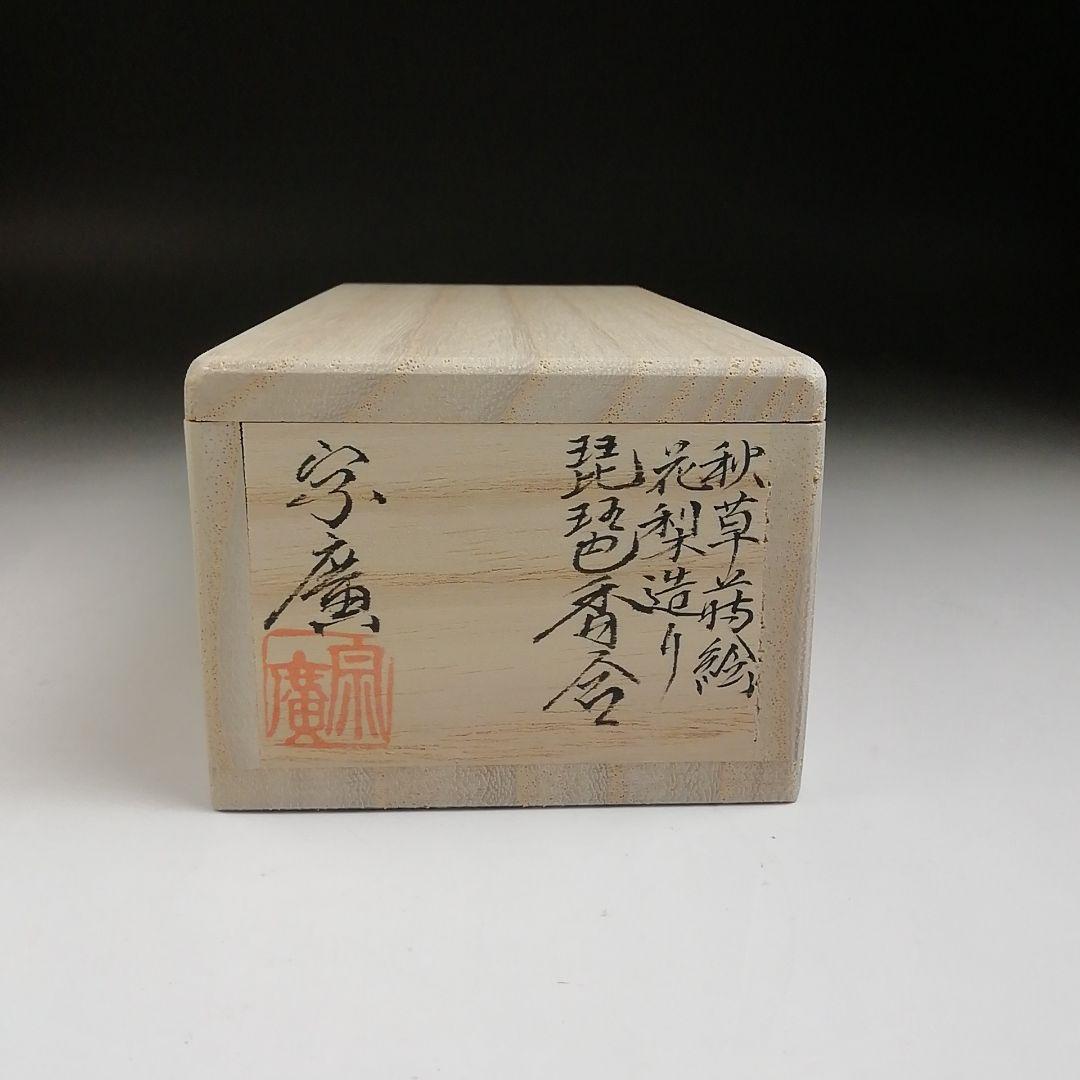 秋草蒔絵
花梨造り
琵琶香合
宗廣
宗廣